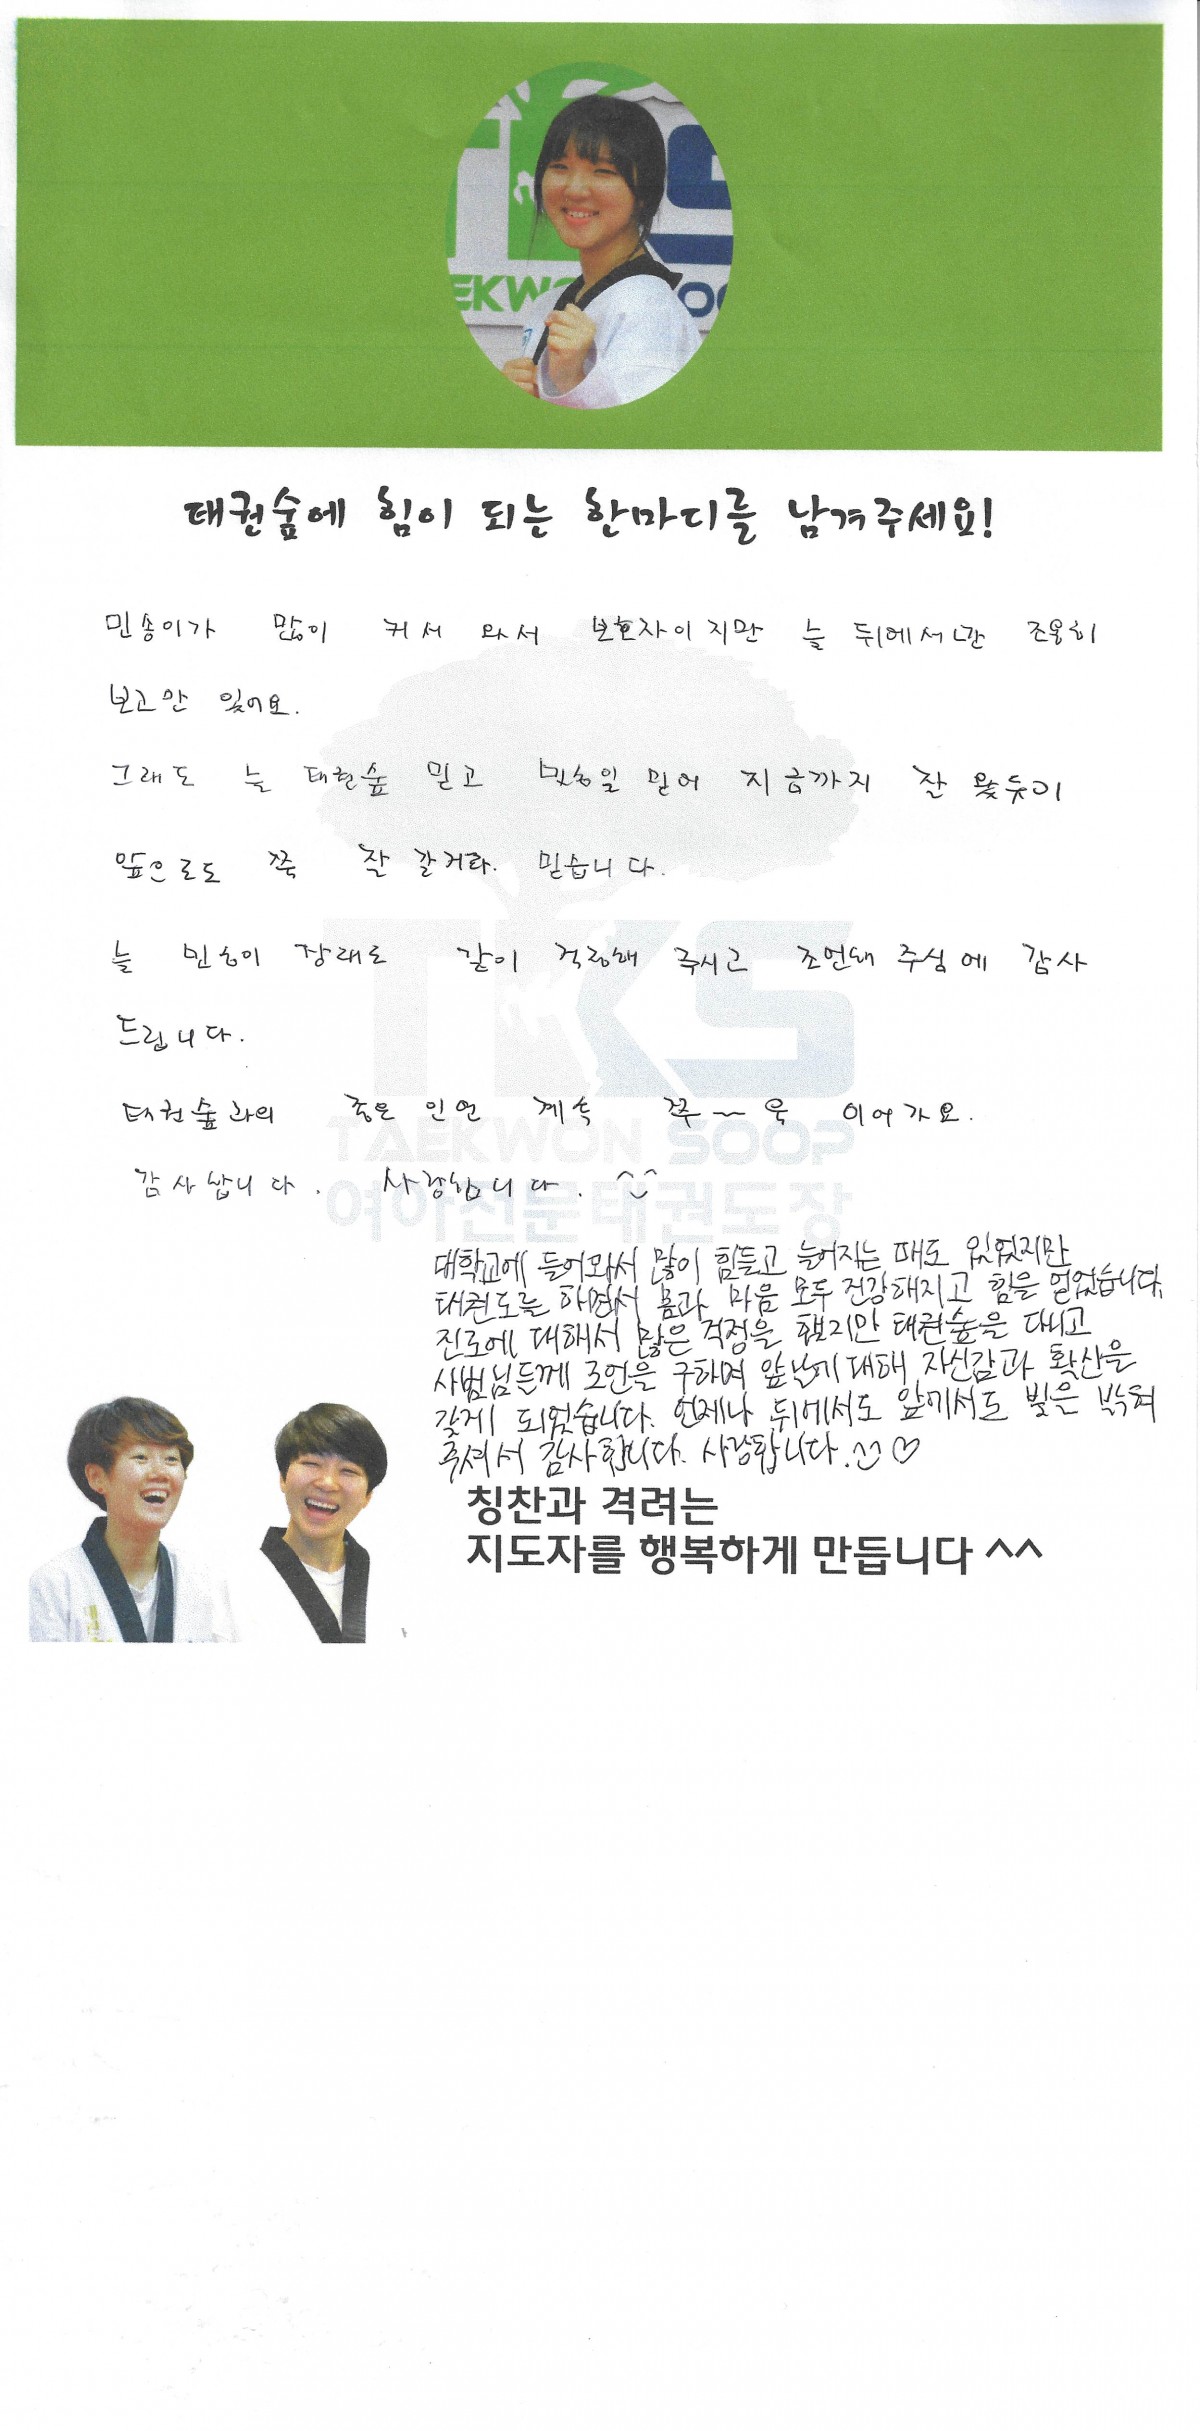 태권숲에 힘이 되는 한마디를 남겨주세요!
민송이가 많이 커서 와서 보호자이지만 늘 뒤에서만 조용히
보고만 있어요.
그래도 늘 태권숲 믿고 민송일 믿어 지금까지 잘 왔듯이
앞으로도 쭉 잘 갈거라 믿습니다.
늘 민송이 장래도 같이 걱정해 주시고 조언해 주심에 감사
드립니다.
태권숲과의 좋은 인연 계속 쭈~욱 이어가요.
감사합니다. 사랑합니다. ^^
TKS
TAEKWON SOOP
여아전문태권도장
대학교에 들어와서 많이 힘들고 늘어지는 때도 있었지만
태권도를 하면서 몸과 마음 모두 건강해지고 힘을 얻었습니다.
진로에 대해서 많은 걱정을 했지만 태권숲을 다니고
사범님들께 조언을 구하며 앞날에 대해 자신감과 확신을
갖게 되었습니다. 언제나 뒤에서도 앞에서도 빛을 밝혀
주셔서 감사합니다. 사랑합니다.^^♡
칭찬과 격려는
지도자를 행복하게 만듭니다 ^^